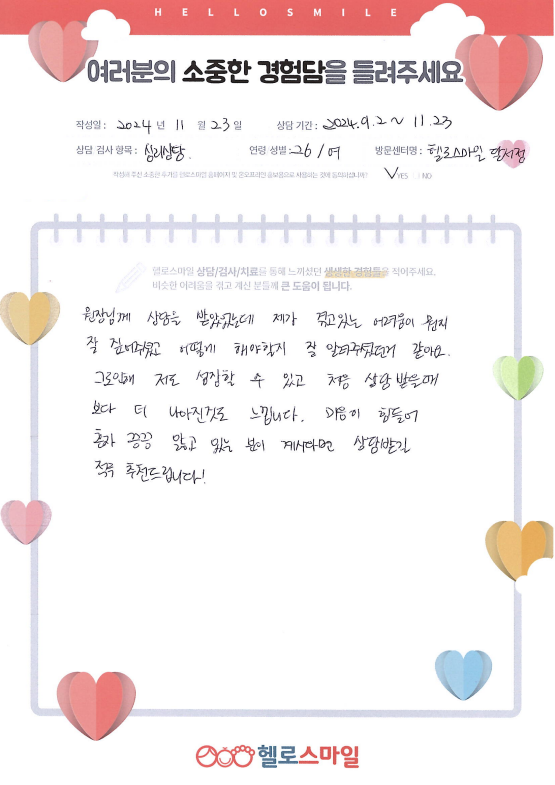 HELLOSMILE
여러분의 소중한 경험담을 들려주세요
작성일 : 2024 년 11 월 23 일 상담 기간 : 2024.9.2 ~ 11.23
상담 검사 항목 : 심리상담. 연령 성별 : 26 / 여 방문센터명 : 헬로스마일 달서점
작성해 주신 소중한 후기를 헬로스마일 홈페이지 및 온오프라인 홍보용으로 사용하는 것에 동의하십니까? YES NO
헬로스마일 상담/검사/치료를 통해 느끼셨던 생생한 경험들을 적어주세요.
비슷한 어려움을 겪고 계신 분들께 큰 도움이 됩니다.
원장님께 상담을 받았었는데 제가 겪고있는 어려움이 뭔지
잘 짚어주셨고 어떻게 해야할지 잘 알려주셨던거 같아요.
그로인해 저도 성장할 수 있고 처음 상담 받을때
보다 더 나아진것도 느낍니다. 마음이 힘들어
혼자 끙끙 앓고 있는 분이 계시다면 상담받길
적극 추천드립니다!
헬로스마일